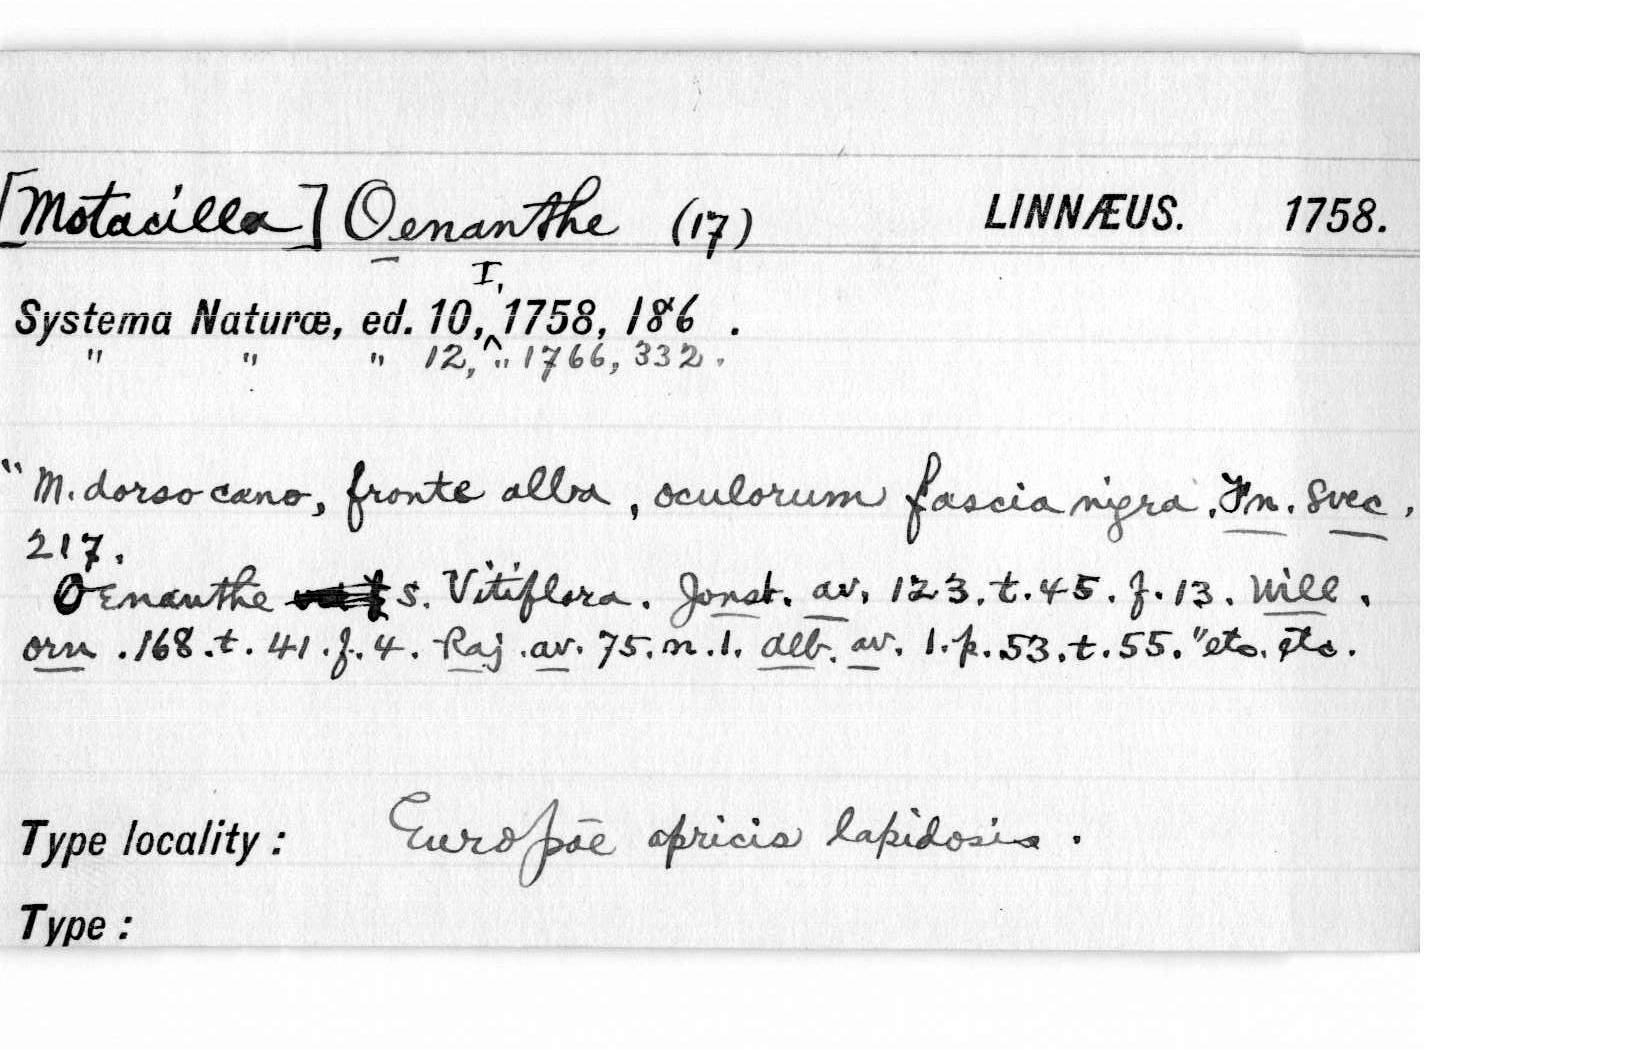 [Motacilla] Oenanthe (17) LINNÆUS. 1758.
I,
Systema Naturæ, ed. 10, ^ 1758, 186 .
" " " 12, " 1766, 332.
"M. dorso cano, fronte alba, oculorum fascia nigra. Fn. svec.
217.
Oenanthe s. Vitiflora. Jonst. av. 123. t. 45. f. 13. Will.
orn. 168. t. 41. f. 4. Raj. av. 75. n. 1. Alb. av. 1. p. 53. t. 55." etc. etc.
Type locality : Europae apricis lapidosis.
Type :